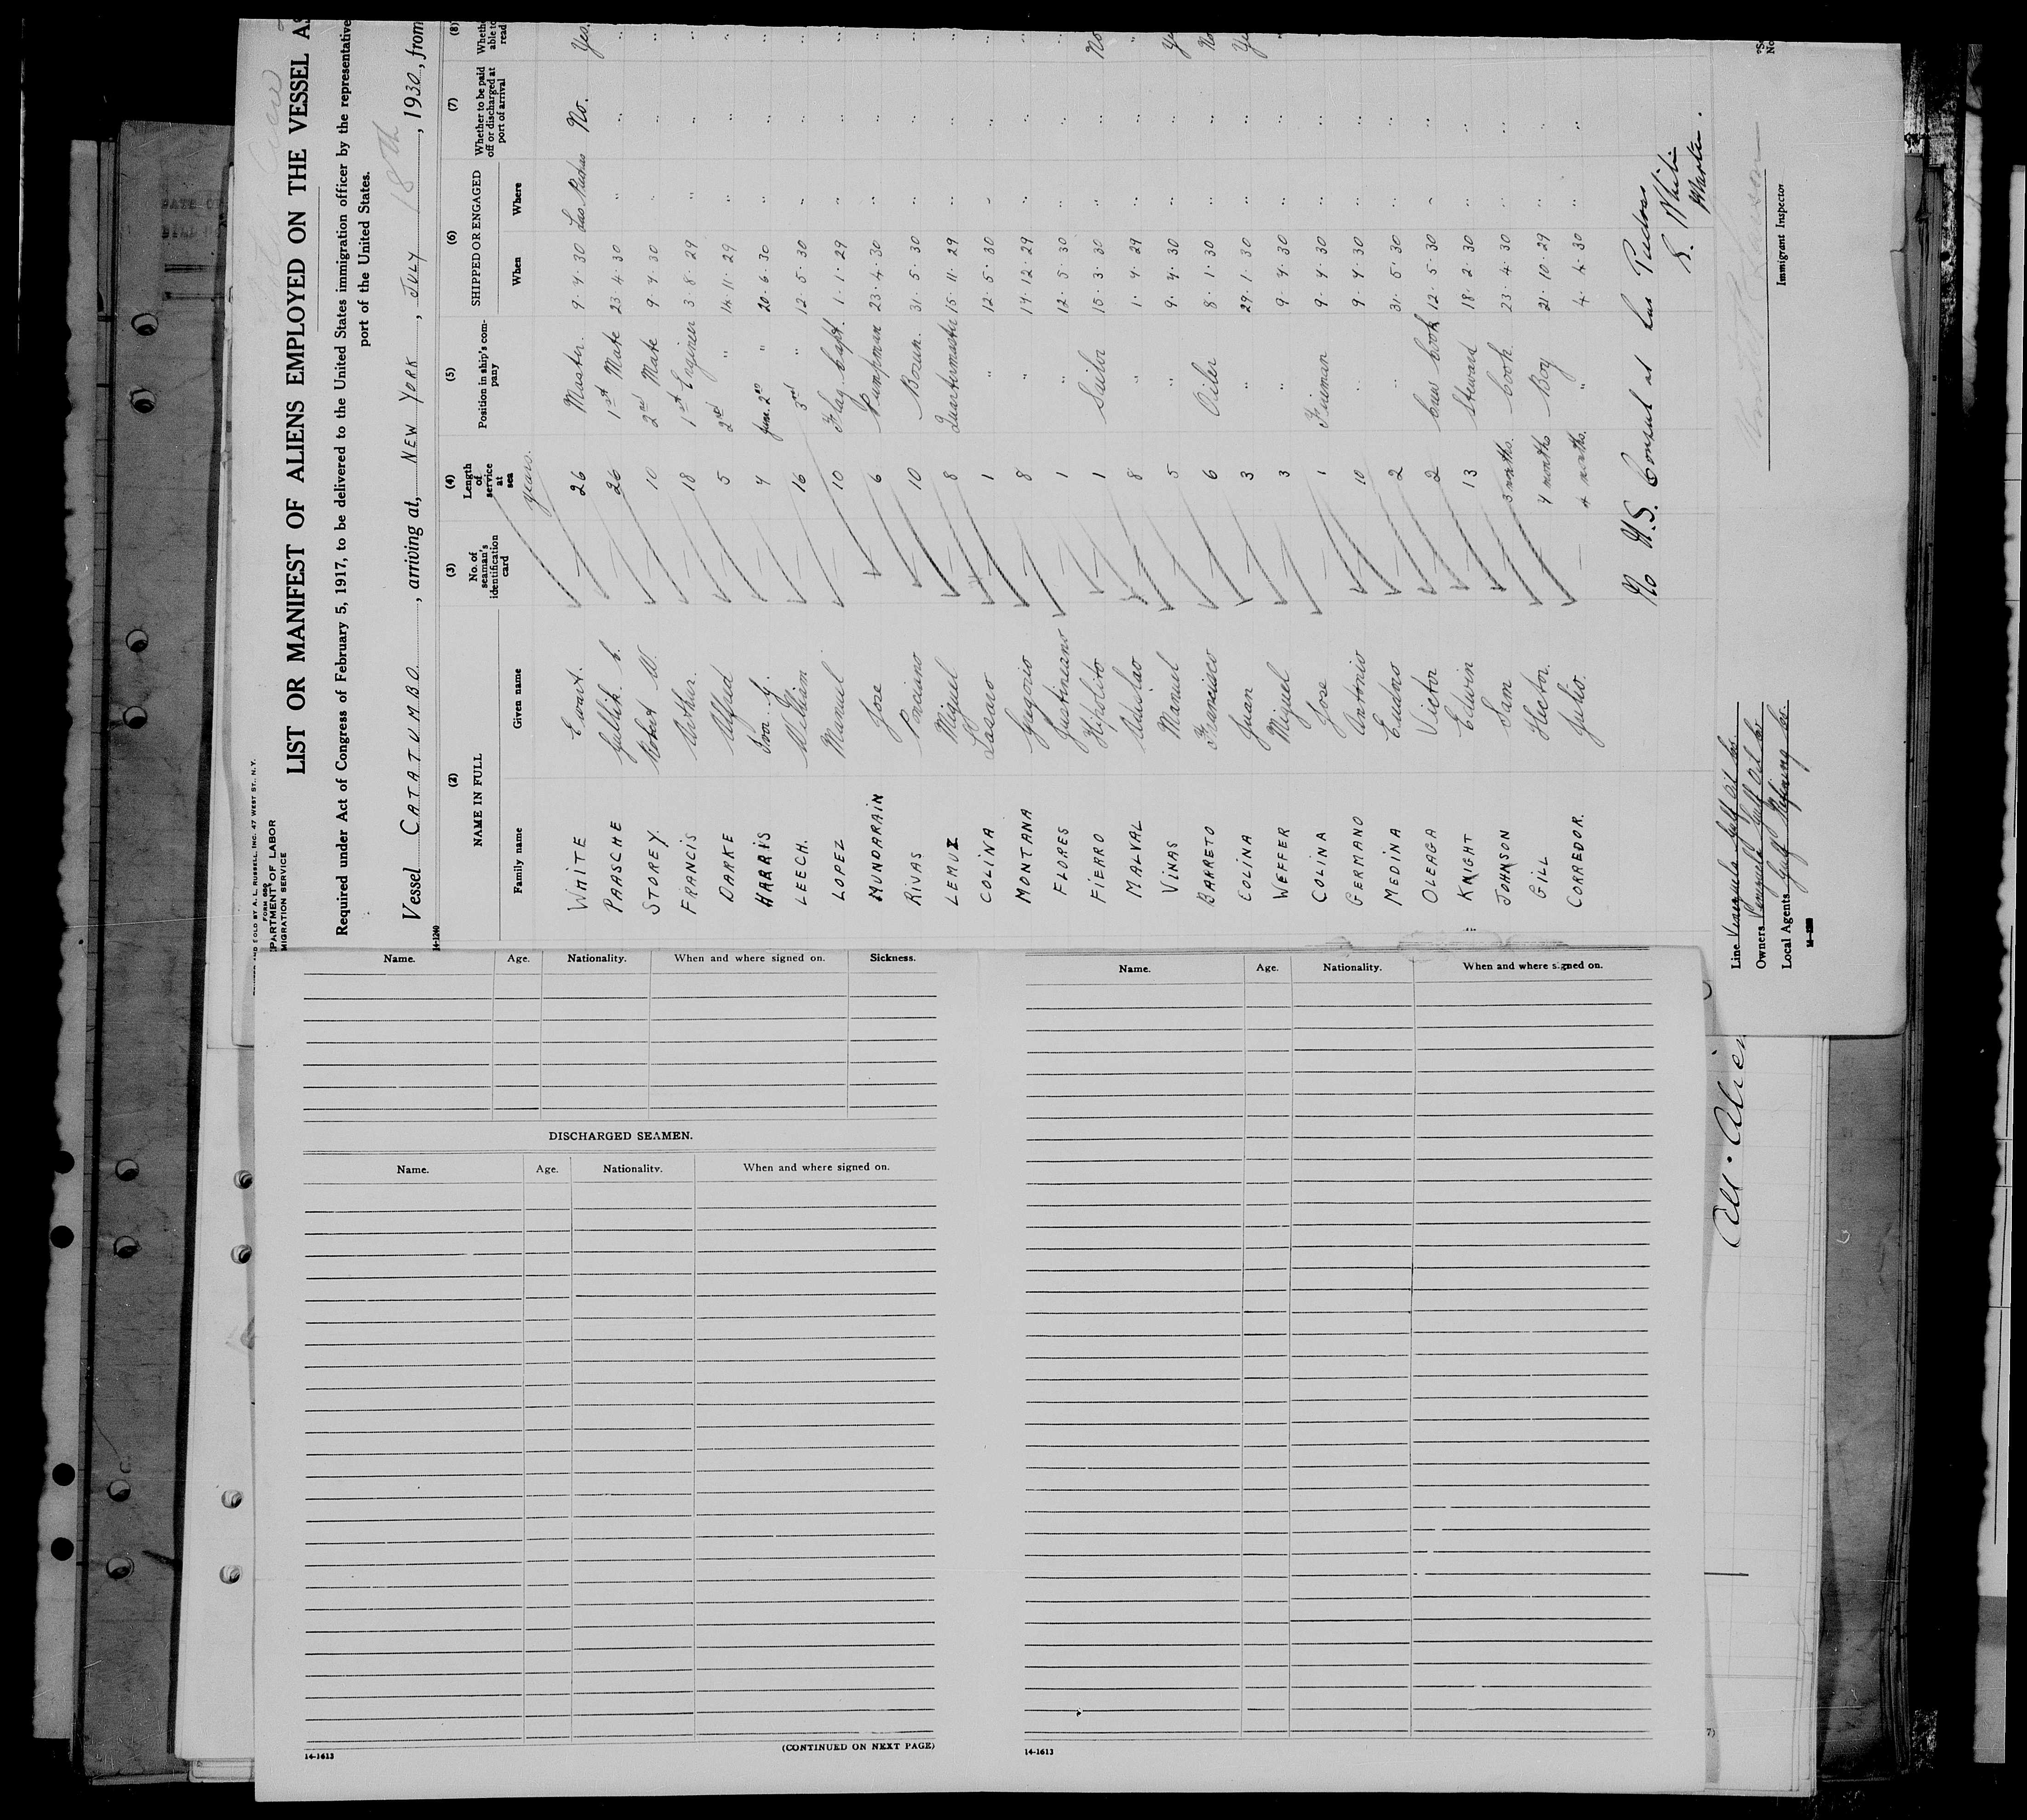 LIST OR MANIFEST OF ALIENS EMPLOYED ON THE VESSEL AS
Required under Act of Congress of February 5, 1917, to be delivered to the United States immigration officer by the representative
port of the United States.
Vessel CATATUMBO, arriving at, NEW YORK, JULY 18th, 1930, from
(2) (3) (4) (5) (6) (7) (8)
NAME IN FULL No. of seaman's identification card Length of service at sea Position in ship's company SHIPPED OR ENGAGED Whether to be paid off or discharged at port of arrival
Family name Given name When Where
years.
WHITE Ewart. 26 Master. 9.4.30 Las Piedras No. Yes.
PAASCHE Gullik C. — 26 1st Mate 23.4.30 " " "
STOREY. Robert W. — 10 2nd Mate 9.4.30 " " "
FRANCIS Arthur. — 18 1st Engineer 3.8.29 " " "
DARKE Alfred — 5 2nd " 14.11.29 " " "
HARRIS Ivor J. — 4 Jun. 2nd " 20.6.30 " " "
LEECH. William — 16 3rd " 12.5.30 " " "
LOPEZ Manuel 10 Flag Capt. 1.1.29 " " "
MUNDARAIN Jose 6 Pumpman 23.4.30 " " "
RIVAS Ponciano 10 Bosun. 31.5.30 " " "
LEMUZ Miguel 8 Quartermaster 15.11.29 " " "
COLINA Lasaro 1 " 12.5.30 " " "
MONTANA Gregorio 8 " 14.12.29 " " "
FLORES Justiniano 1 " 12.5.30 " " "
FIERRO Hipolito 1 Sailor 15.3.30 " " No
MALVAL 8 " 1.4.29 " " "
VINAS Manuel 5 " 9.4.30 " " Ye
BARRETO Francisco 6 Oiler 8.1.30 " " No
COLINA Juan 3 " 29.1.30 " " Ye
WEFFER Miguel 3 " 9.4.30 " " "
COLINA Jose 1 Fireman 9.4.30 " "
GERMANO Antonio 10 " 9.4.30 " "
MEDINA 2 " 31.5.30 " "
OLEAGA Victor 2 Crew Cook 12.5.30 " "
KNIGHT Edwin 13 Steward 18.2.30 " "
JOHNSON Sam 3 months. Cook 23.4.30 " "
GILL Hector. 4 months Boy 21.10.29 " "
CORREDOR. Julio. — 4 months. " 4.4.30 " "
No U.S. Consul at Las Piedras
E. White
Master.
Immigrant Inspector
Line Venezuela Gulf Oil Co.
Owners Venezuela Gulf Oil Co
Local Agents Gulf Refining Co.
Name. Age. Nationality. When and where signed on. Sickness.
DISCHARGED SEAMEN.
Name. Age. Nationality. When and where signed on.
14-1613 (CONTINUED ON NEXT PAGE)
Name. Age. Nationality. When and where signed on.
14-1613